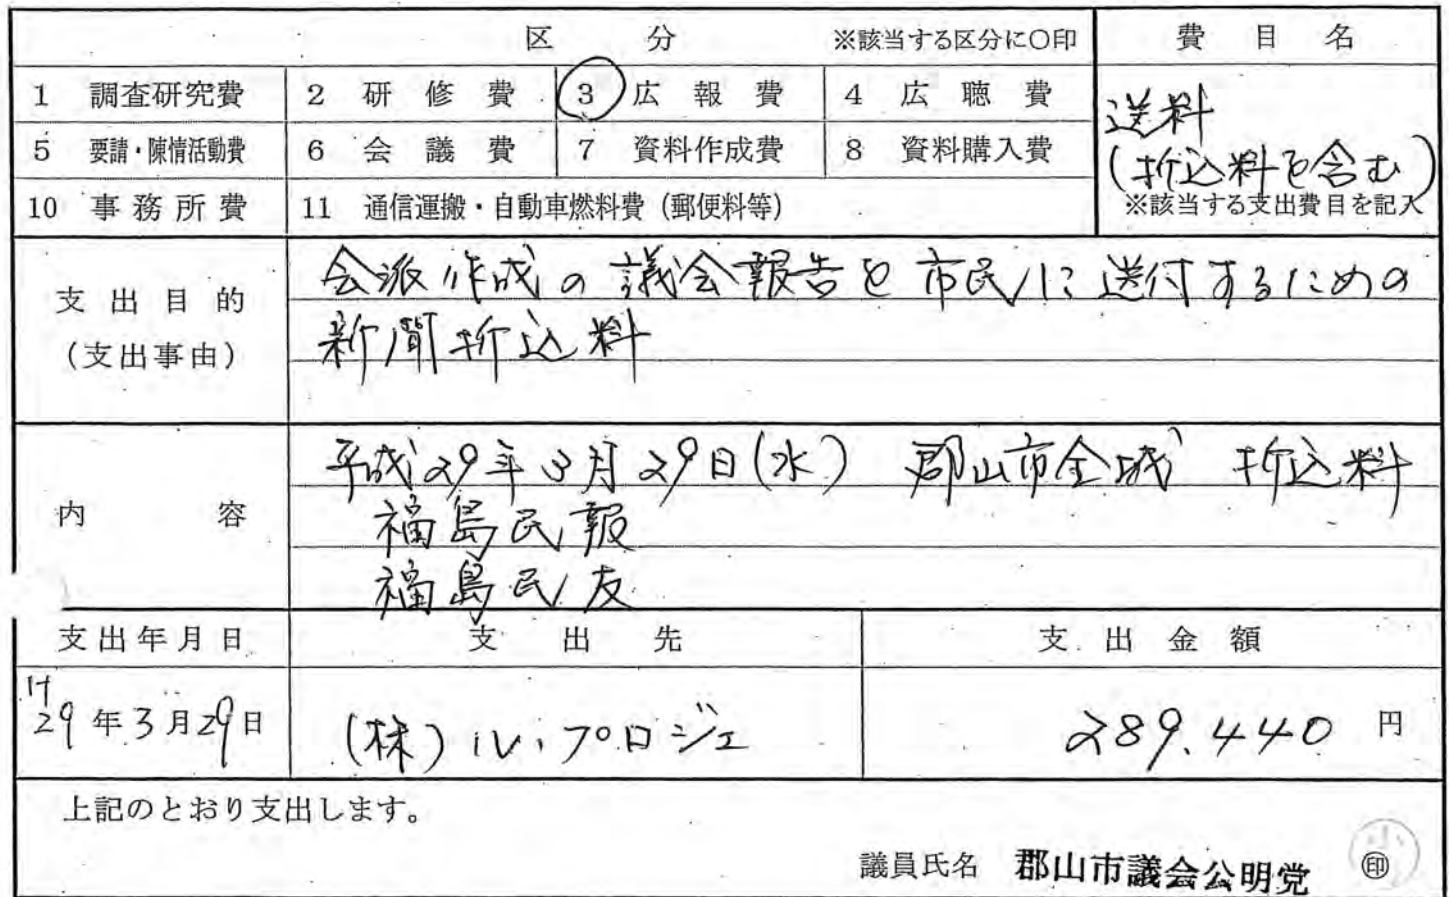 区 分 ※該当する区分に〇印 費 目 名
1 調査研究費 2 研 修 費 3 広 報 費 4 広 聴 費
送料
5 要請・陳情活動費 6 会 議 費 7 資料作成費 8 資料購入費
(折込料を含む)
10 事 務 所 費 11 通信運搬・自動車燃料費(郵便料等)
※該当する支出費目を記入
支 出 目 的
(支出事由)
会派作成の議会報告を市民に送付するための
新聞折込料
内 容
平成29年3月29日(水) 郡山市全域 折込料
福島民報
福島民友
支出年月日 支 出 先 支 出 金 額
H29年3月29日 (株)ル・プロジェ 289.440 円
上記のとおり支出します。
議員氏名 郡山市議会公明党 ㊞